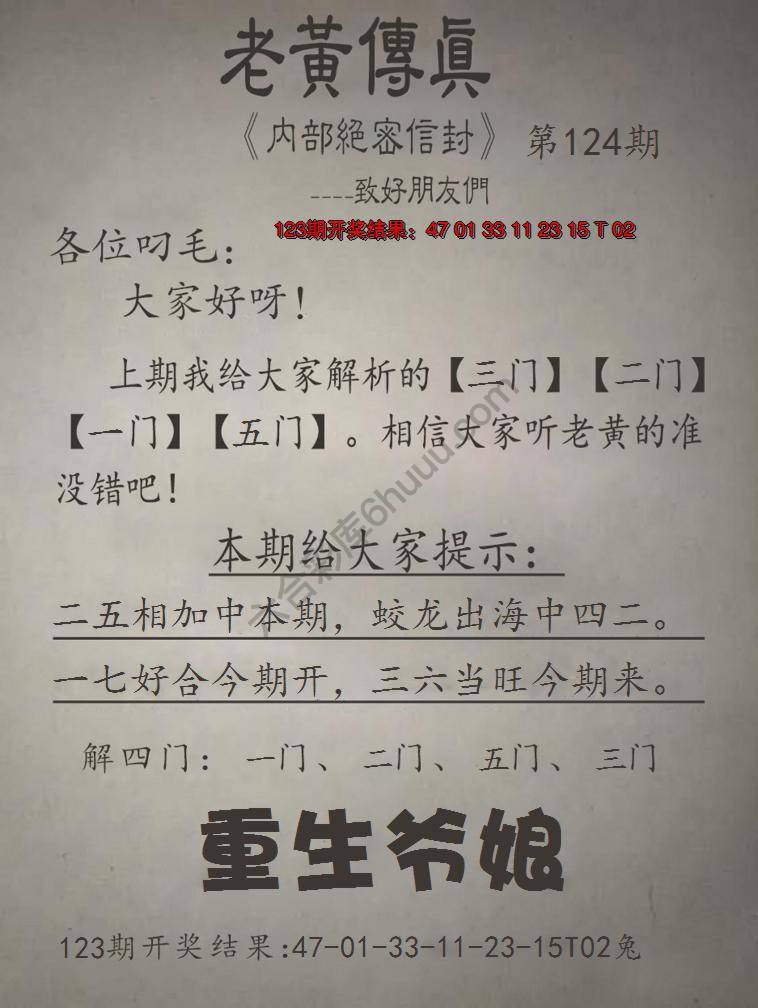 老黃傳真
《内部絕密信封》 第124期
----致好朋友們
123期开奖结果：47 01 33 11 23 15 T 02
各位叼毛：
大家好呀！
上期我给大家解析的【三门】【二门】
【一门】【五门】。相信大家听老黄的准
没错吧！
本期给大家提示：
二五相加中本期，蛟龙出海中四二。
一七好合今期开，三六当旺今期来。
解四门：一门、二门、五门、三门
重生爷娘
123期开奖结果:47-01-33-11-23-15T02兔
六合彩库6huuu.com